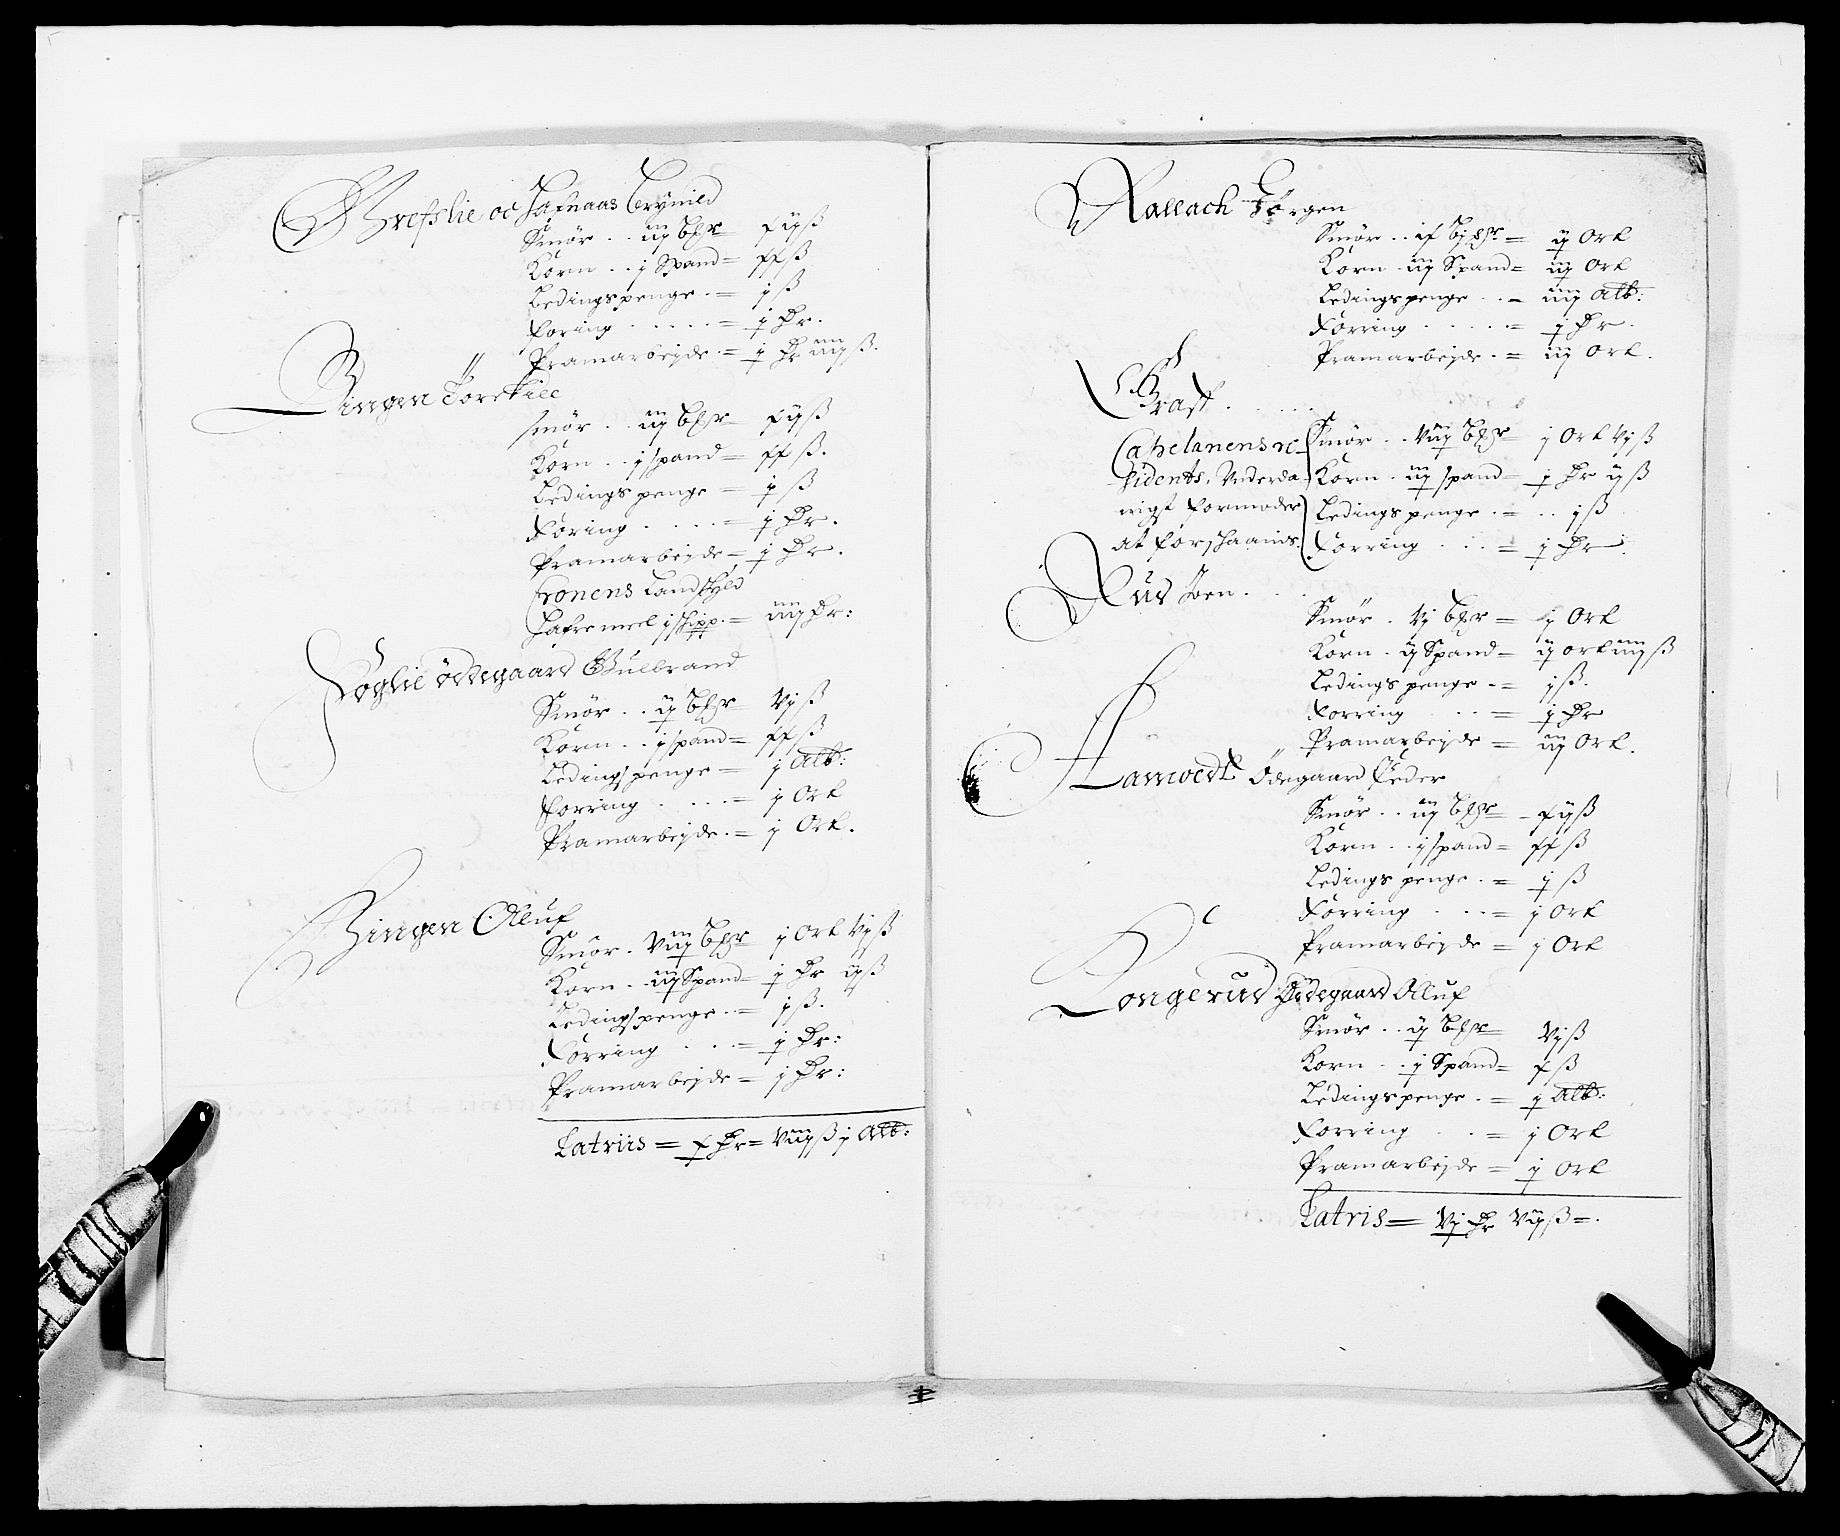 Grefslie oc Hafnaas Brynild
Smør . . iiij bpr xijß
Korn . . j Spand = xxß
Ledingspenge . = jß
Foring . . . . . = j Dr.
Pramarbejde . = j Dr iiijß.
Bingen Torekill
smør . . iij bpr xijß
Korn . . j spand = xxß.
Ledingspenge = jß
Føring . . . . = j Dr.
Pramarbejde = j Dr.
Cronens Landskyld
Hafremeel j skipp. = iiij Dr:
Foglie ødegaard Gulbrand
Smør . . ij bpr vjß
Korn . . j spand = xxß
Ledingspenge = j Alb:
Forring . . . . = j Ort
Pramarbejde . = j Ort.
Bingen Olluf
Smør . viij bpr j Ort vjß
Korn . iiij Spand = j Dr ijß
Ledingspenge . = jß.
Forring . . . = j Dr:
Pramarbejde = j Dr:
Latriis = x Dr = viijß j Alb:
Kallach Jørgen
Smør . . ix bpr = ij Ort
Korn . iij Spand = iij Ort
Ledingspenge . . = iiij Alb:
Førring . . . . = j Dr.
Pramarbejde . = iij Ort.
Graff . . . . .
Capelanens re-
sidents, Underda-
nigst formoder
at forschaanis.
Smør . . viij bpr j Ort vjß
Korn . iiij spand = j Dr ijß
Ledingspenge . = . . jß
Forring . . = j Dr.
Rud Joen . . .
Smør . vj bpr = j Ort
Korn . ij Spand = ij ort iiijß
Ledingspenge . = jß.
Forring . . = j Dr
Pramarbejde = iij Ort.
Hamvedt Ødegaard Peder
Smør . . iij bpr - xijß
Korn . . j spand = xxß
Ledingspenge . = jß
Førring . . . = j Ort
Pramarbejde = j Ort
Longerud Ødegaard Olluf
Smør . . ij bpr vjß
Korn . . j Spand = xß
Ledingspenge . = j Alb:
Forring . . = j Ort
Pramarbejde = j Ort
Latris = vj Dr vijß = .